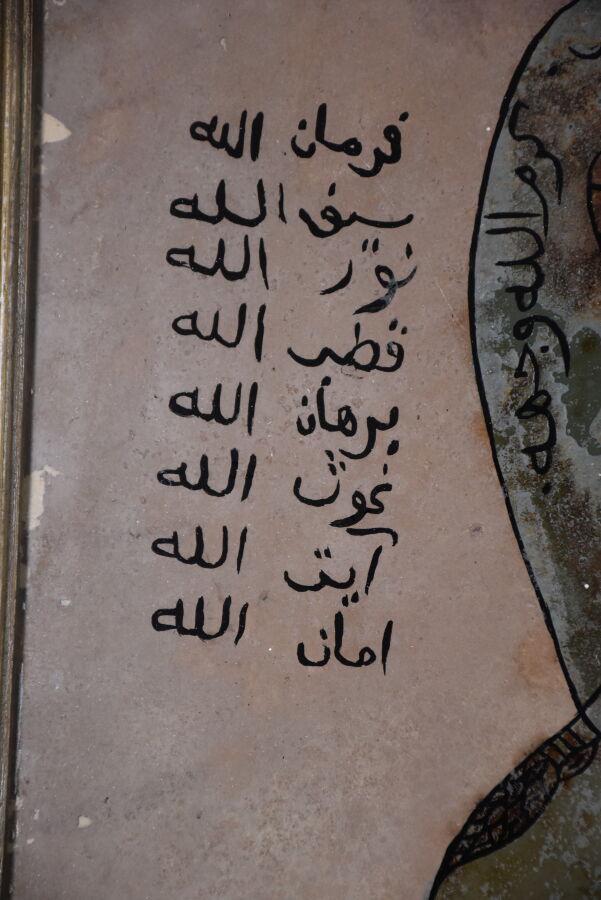 فرمان الله
سيف الله
نور الله
قطب الله
برهان الله
غوث الله
آيت الله
امان الله
كرم الله وجهه